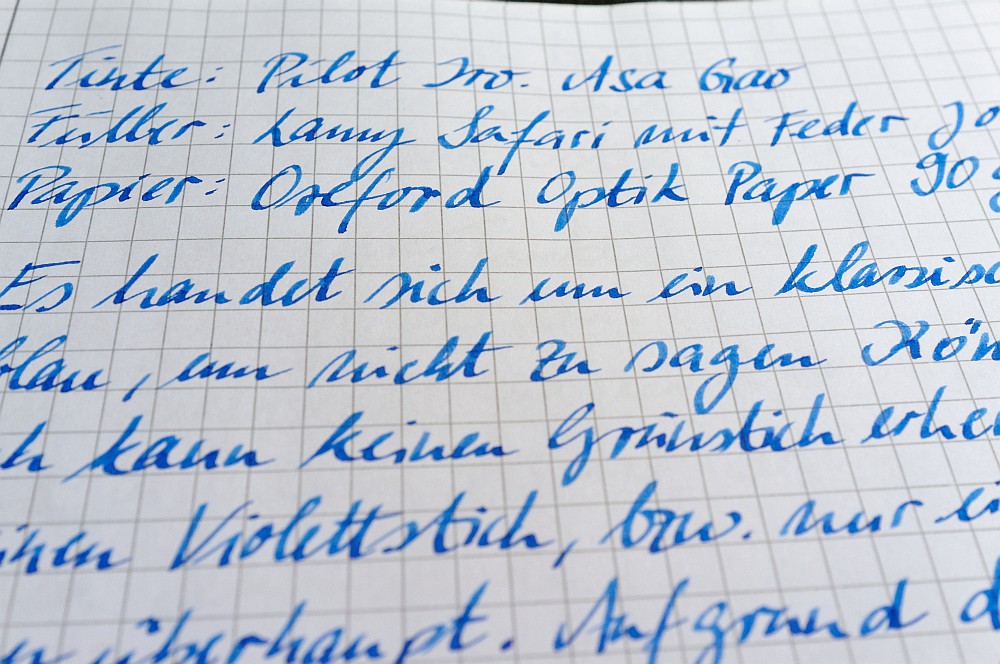 Tinte: Pilot Iro. Asa Gao
Füller: Lamy Safari mit Feder Jo
Papier: Oxford Optik Paper 90 g
Es handet sich um ein klassisc
blau, um nicht zu sagen Kön
ch kann keinen Grünstich erke
inen Violettstich, bzw. nur ei
n überhaupt. Aufgrund d